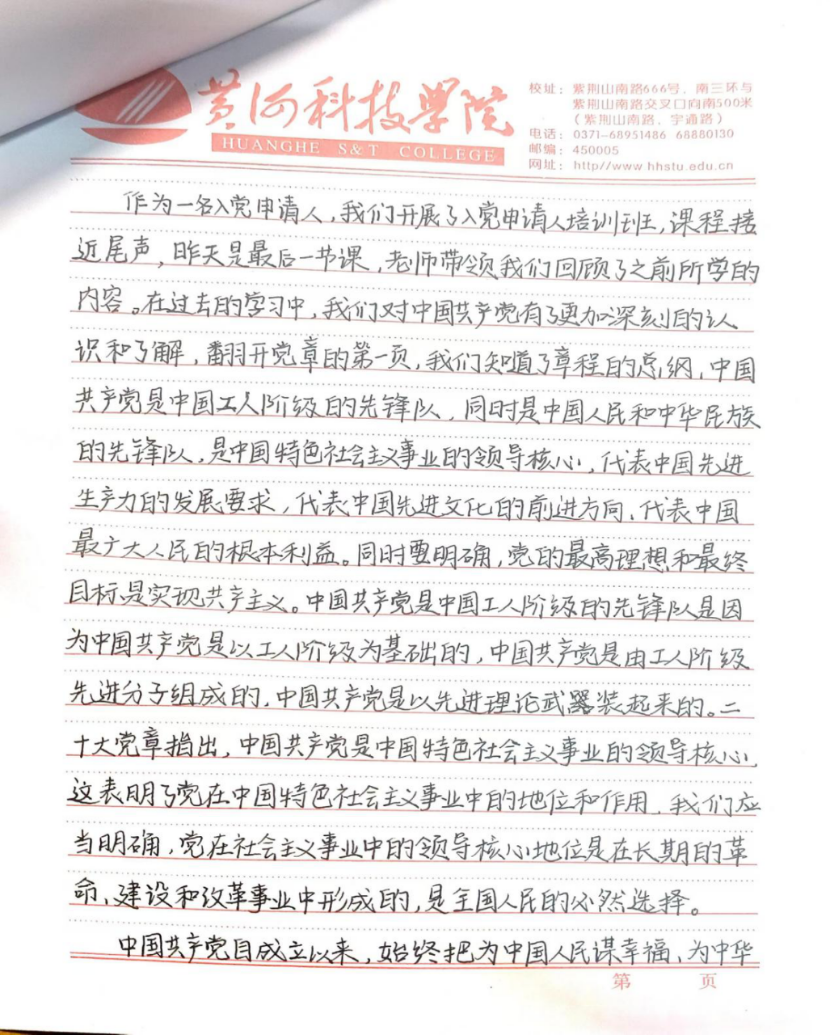 黄河科技学院
HUANGHE S&T COLLEGE
校址：紫荆山南路666号，南三环与
紫荆山南路交叉口向南500米
（紫荆山南路，宇通路）
电话：0371-68951486 68880130
邮编：450005
网址：http//www hhstu.edu.cn
作为一名入党申请人，我们开展了入党申请人培训班，课程接
近尾声，昨天是最后一节课，老师带领我们回顾了之前所学的
内容。在过去的学习中，我们对中国共产党有了更加深刻的认
识和了解，翻开党章的第一页，我们知道了章程的总纲，中国
共产党是中国工人阶级的先锋队，同时是中国人民和中华民族
的先锋队，是中国特色社会主义事业的领导核心，代表中国先进
生产力的发展要求，代表中国先进文化的前进方向、代表中国
最广大人民的根本利益。同时要明确，党的最高理想和最终
目标是实现共产主义。中国共产党是中国工人阶级的先锋队是因
为中国共产党是以工人阶级为基础的，中国共产党是由工人阶级
先进分子组成的，中国共产党是以先进理论武器装起来的。二
十大党章指出，中国共产党是中国特色社会主义事业的领导核心，
这表明了党在中国特色社会主义事业中的地位和作用，我们应
当明确，党在社会主义事业中的领导核心地位是在长期的革
命、建设和改革事业中形成的，是全国人民的必然选择。
中国共产党自成立以来，始终把为中国人民谋幸福、为中华
第 页